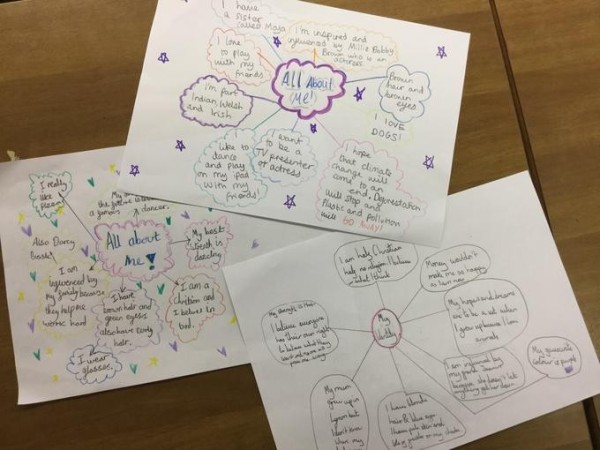 I have
a sister
called Maya
I'm inspired and
influenced by Millie Bobby
Brown who is an
actoress
I love
to play
with my
friends
All About
Me!
Brown
hair and
brown
eyes.
I'm part
Indian, Welsh
and Irish
I LOVE
DOGS!
I like to
dance
and play
on my ipad
with my
friends!
I want
to be a
TV presenter
or actress
I hope
that climate
change will
come to an
end. Deforestation
will stop and
Plastic and Pollution
will
I really
like
a famous dancer.
All about
Me!
My best
strength is
dancing
Also Darcy
I am
influenced by
my family because
they help me
work hard
I have
brown hair and
green eyes
also have curly
hair.
I am a
christian and
I believe in
God.
I wear
glasses.
My
I am half Christian
half no religion. I believe
Money wouldn't
make me as happy
My hopes and dreams
are to be a vet when
I grow up because I love
animals
My strength is that
I believe everyone
has their own right
to believe what they
I am influenced by
my friend
My favourite
colour is purple
My mum
grew up in
I have blonde
hair &amp; blue eyes
I have pale skin and